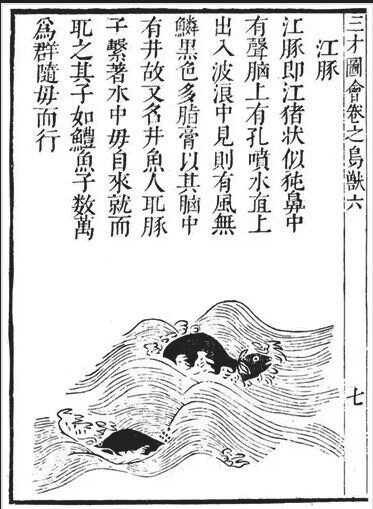 三才圖會卷之鳥獸六
七
江豚
江豚即江猪狀似㹠鼻中
有聲腦上有孔噴水直上
出入波浪中見則有風無
鱗黑色多脂膏以其腦中
有井故又名井魚人取豚
子繫著水中毋自來就而
取之其子如鱧魚子数萬
爲群隨毋而行